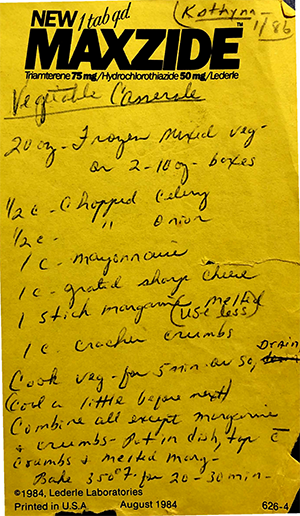 NEW 1 tab qd
Kathynn
1/86
MAXZIDE™
Triamterene 75 mg/Hydrochlorothiazide 50 mg/Lederle
Vegetable Casserole
20 oz - Frozen Mixed Veg -
or 2 - 10 oz - boxes
1/2 c - Chopped Celery
1/2 c - " Onion
1 c - mayonnaise
1 c - grated sharp cheese
1 stick margarine - melted
(Use less)
1 c. cracker crumbs
Cook veg - for 5 min or so, Drain
(Cool a little before next)
Combine all except margarine
& crumbs - Put in dish, top c̄
crumbs & melted marg -
Bake 350° for 20 - 30 min -
©1984, Lederle Laboratories
Printed in U.S.A August 1984 626-4